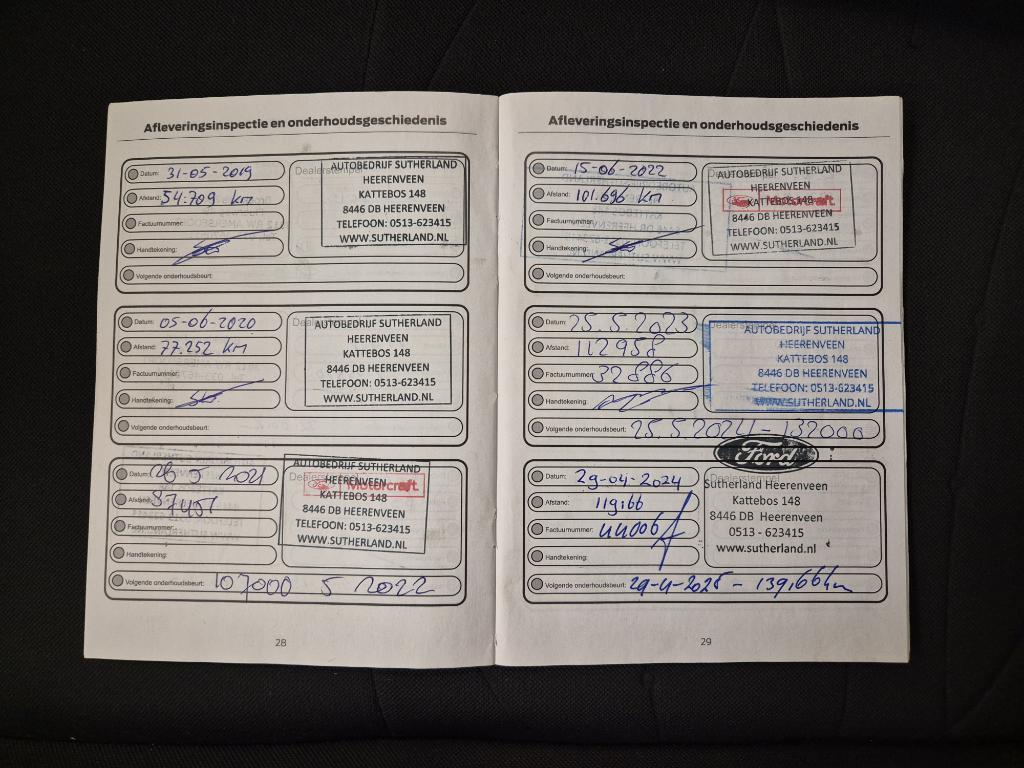 Afleveringsinspectie en onderhoudsgeschiedenis
Datum: 31-05-2019
Afstand: 54.709 km
Factuurnummer:
Handtekening:
Volgende onderhoudsbeurt:
Dealerstempel
AUTOBEDRIJF SUTHERLAND
HEERENVEEN
KATTEBOS 148
8446 DB HEERENVEEN
TELEFOON: 0513-623415
WWW.SUTHERLAND.NL
Datum: 05-06-2020
Afstand: 77.252 km
Factuurnummer:
Handtekening:
Volgende onderhoudsbeurt:
AUTOBEDRIJF SUTHERLAND
HEERENVEEN
KATTEBOS 148
8446 DB HEERENVEEN
TELEFOON: 0513-623415
WWW.SUTHERLAND.NL
Datum: 26 5 2021
Afstand: 87451
Factuurnummer:
Handtekening:
Volgende onderhoudsbeurt: 107000 5 2022
AUTOBEDRIJF SUTHERLAND
HEERENVEEN
Motorcraft
KATTEBOS 148
8446 DB HEERENVEEN
TELEFOON: 0513-623415
WWW.SUTHERLAND.NL
28
Afleveringsinspectie en onderhoudsgeschiedenis
Datum: 15-06-2022
Afstand: 101.696 km
Factuurnummer:
Handtekening:
Volgende onderhoudsbeurt:
AUTOBEDRIJF SUTHERLAND
HEERENVEEN
KATTEBOS 148
Motorcraft
8446 DB HEERENVEEN
TELEFOON: 0513-623415
WWW.SUTHERLAND.NL
Datum: 25.5.2023
Afstand: 112958
Factuurnummer: 32886
Handtekening:
Volgende onderhoudsbeurt: 25.5.2024 - 132000
Dealerstempel
AUTOBEDRIJF SUTHERLAND
HEERENVEEN
KATTEBOS 148
8446 DB HEERENVEEN
TELEFOON: 0513-623415
WWW.SUTHERLAND.NL
Datum: 29-04-2024
Afstand: 119,166
Factuurnummer: 44006
Handtekening:
Volgende onderhoudsbeurt: 29-4-2025 - 139,166 km
Ford
Dealerstempel
Sutherland Heerenveen
Kattebos 148
8446 DB Heerenveen
0513 - 623415
www.sutherland.nl
29